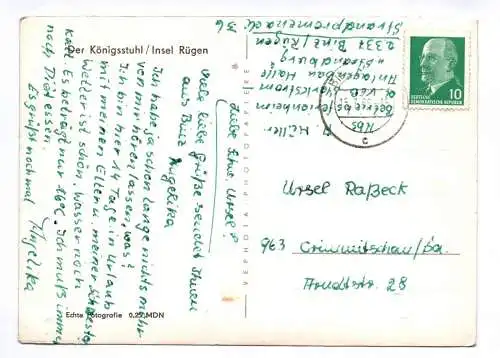 Der Königsstuhl / Insel Rügen
Liebe Ehre Ursel!
Viele liebe Grüße sendet Ihnen
aus Binz Angelika
Ich habe ja schon lange nichts mehr
von mir hören lassen, was?
Ich bin hier 14 Tage in Urlaub
mit meinen Eltern u. meiner Schwester
Wetter ist schön. Wasser noch
kalt. Es beträgt nur 16°C. Ich muß immer
noch Diät essen.
Es grüßt nochmal Angelika
Echte Fotografie 0,25 MDN
VEB POLYPHOTOPAPIERE
A. Müller
Betriebsferienheim
d. VEB Starkstrom
Anlagenbau Halle
"Strandburg"
2337 Binz/Rügen
Strandpromenade 36
DEUTSCHE
DEMOKRATISCHE REPUBLIK
10
c
Ursel Raßeck
963 Crimmitschau/Sa.
Arndtstr. 28